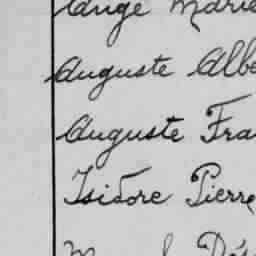 Ange Marie
Auguste Albe
Auguste Fra
Isidore Pierre